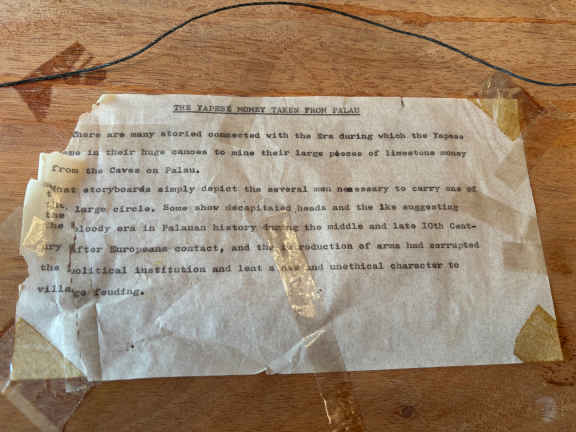 THE YAPESE MONEY TAKEN FROM PALAU
There are many storied connected with the Era during which the Yapese
came in their huge canoes to mine their large pieces of limestone money
from the Caves on Palau.
What storyboards simply depict the several men necessary to carry one of
the large circle. Some show decapitated heads and the like suggesting
the bloody era in Palauan history during the middle and late 10th Cent-
ury after European contact, and the introduction of arms had corrupted
the political institution and lent a new and unethical character to
village feuding.